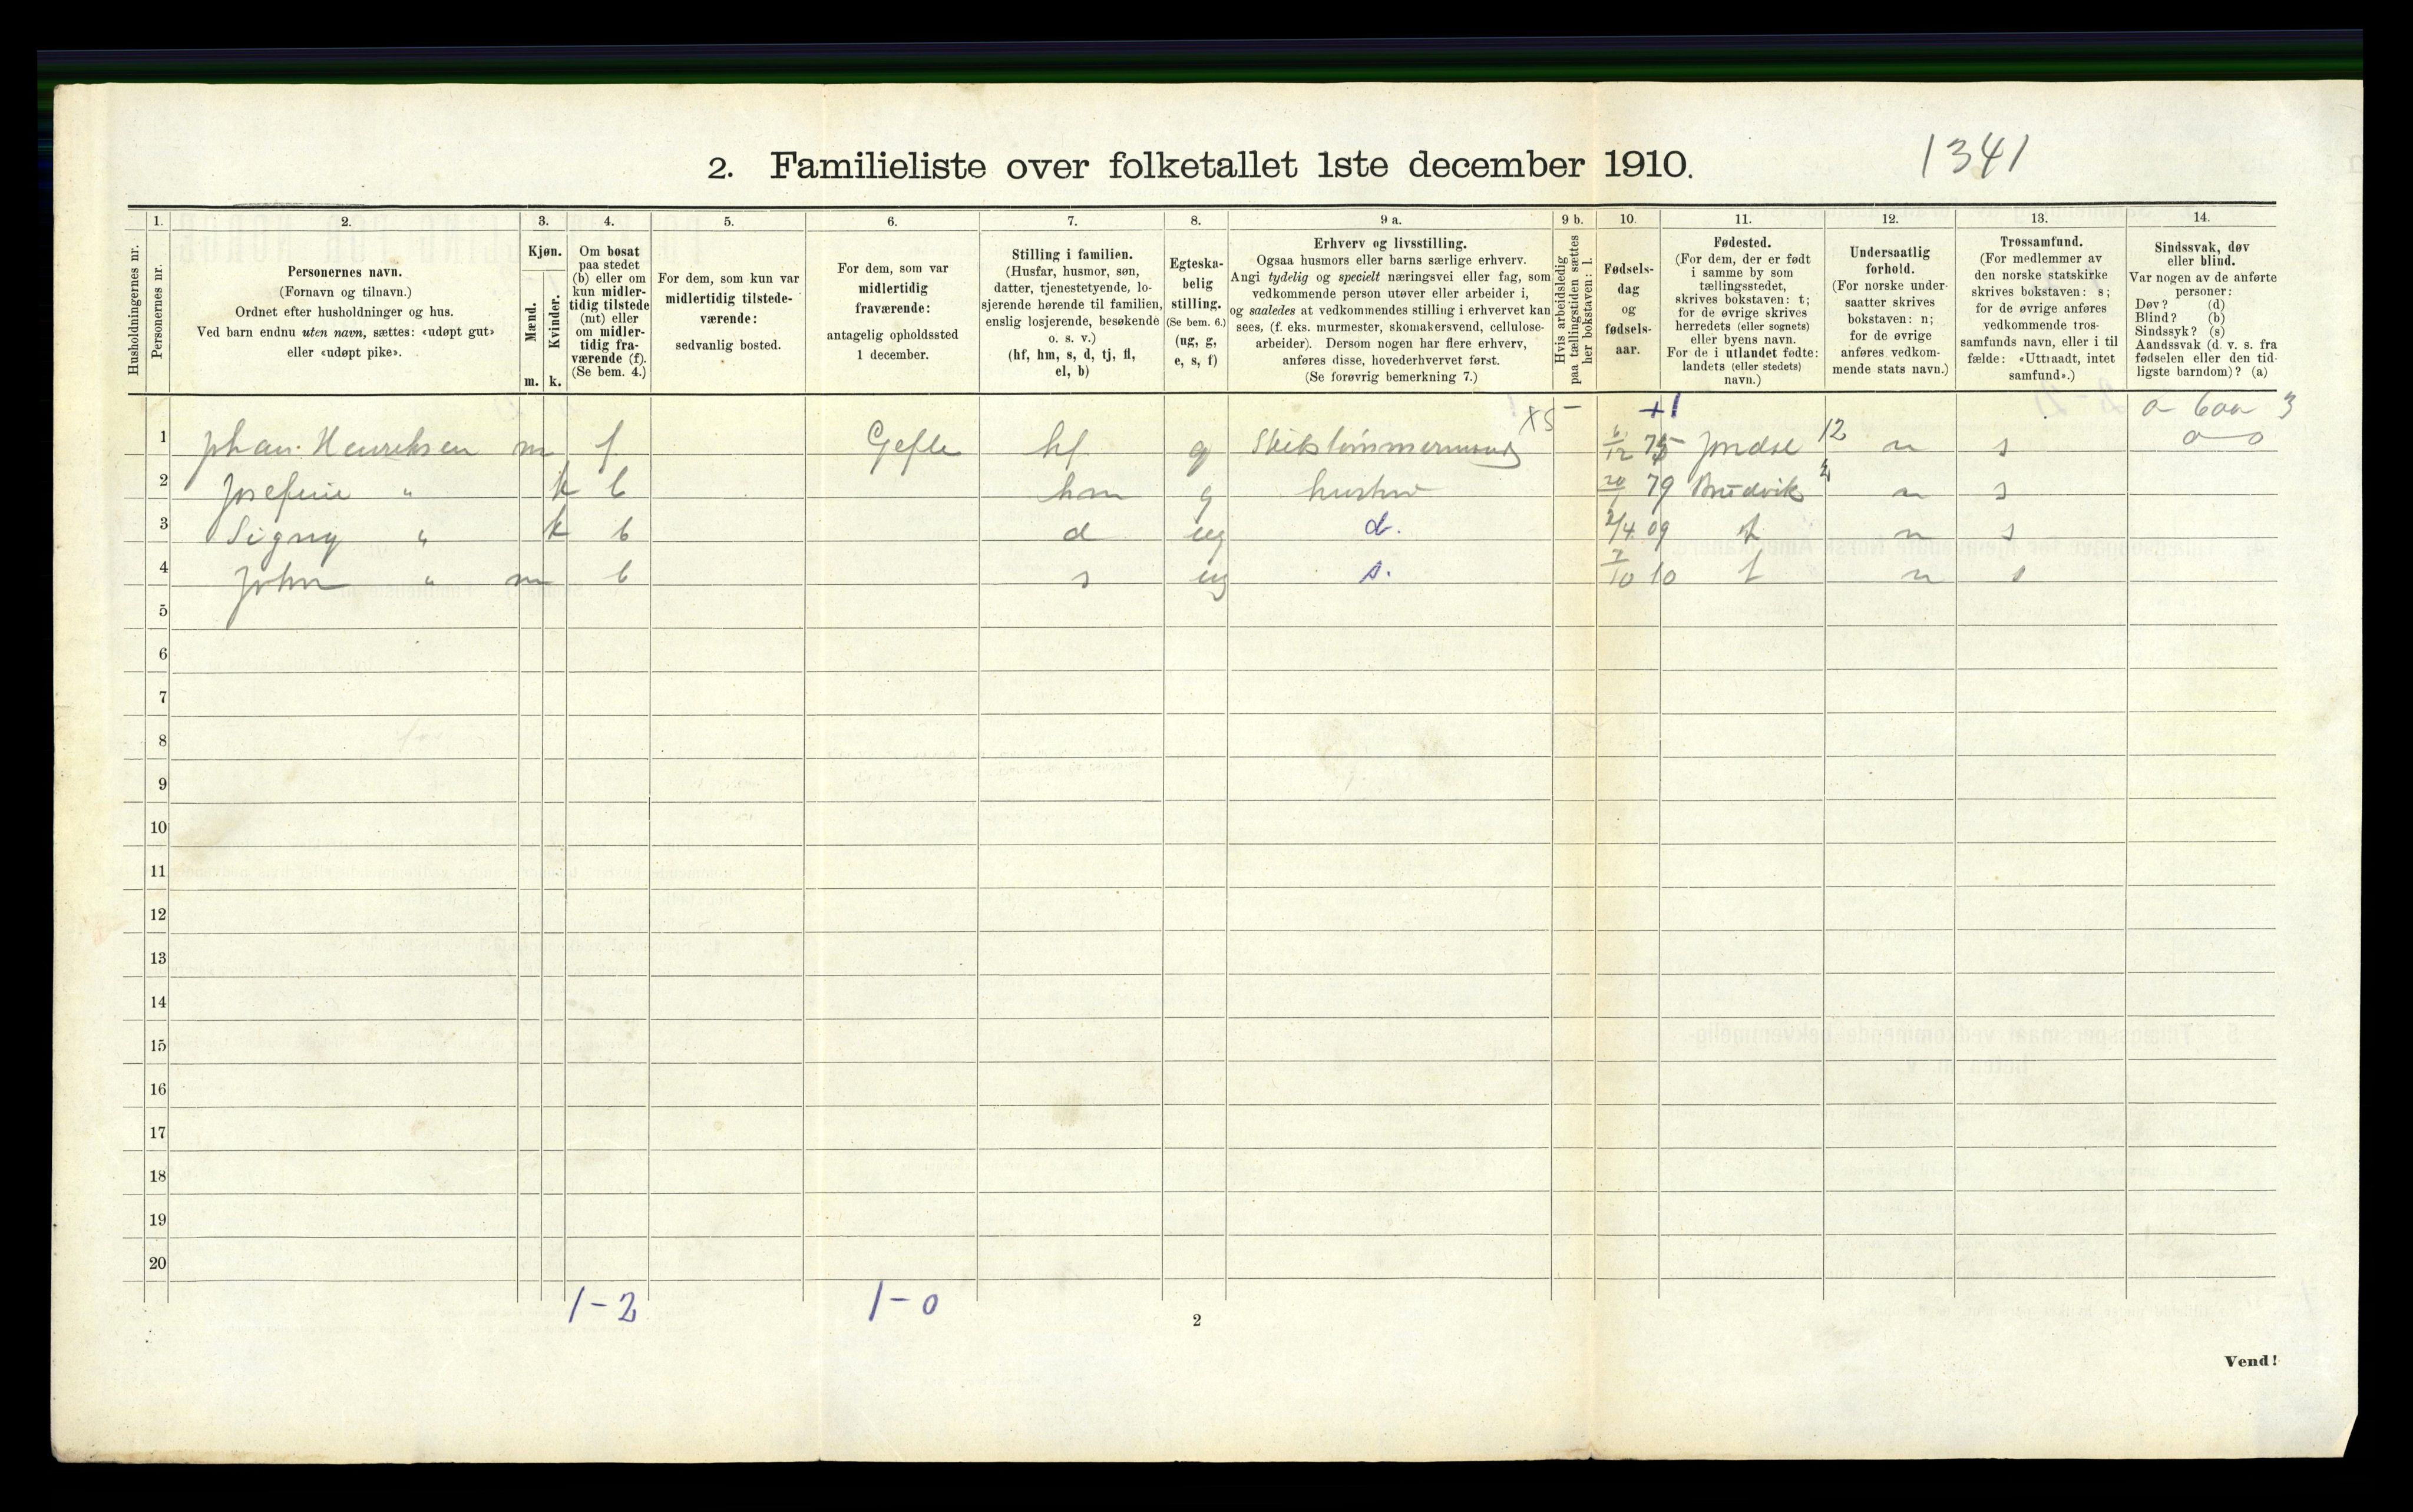 2. Familieliste over folketallet 1ste december 1910.
1341
1. 2. 3. 4. 5. 6. 7. 8. 9 a. 9 b. 10. 11. 12. 13. 14.
Husholdningernes nr.
Personernes nr.
Personernes navn.
(Fornavn og tilnavn.)
Ordnet efter husholdninger og hus.
Ved barn endnu uten navn, sættes: «udøpt gut»
eller «udøpt pike».
Kjøn.
Mænd.
Kvinder.
m. k.
Om bosat
paa stedet
(b) eller om
kun midler-
tidig tilstede
(mt) eller
om midler-
tidig fra-
værende (f).
(Se bem. 4.)
For dem, som kun var
midlertidig tilstede-
værende:
sedvanlig bosted.
For dem, som var
midlertidig
fraværende:
antagelig opholdssted
1 december.
Stilling i familien.
(Husfar, husmor, søn,
datter, tjenestetyende, lo-
sjerende hørende til familien,
enslig losjerende, besøkende
o. s. v.)
(hf, hm, s, d, tj, fl,
el, b)
Egteska-
belig
stilling.
(Se bem. 6.)
(ug, g,
e, s, f)
Erhverv og livsstilling.
Ogsaa husmors eller barns særlige erhverv.
Angi tydelig og specielt næringsvei eller fag, som
vedkommende person utøver eller arbeider i,
og saaledes at vedkommendes stilling i erhvervet kan
sees, (f. eks. murmester, skomakersvend, cellulose-
arbeider). Dersom nogen har flere erhverv,
anføres disse, hovederhvervet først.
(Se forøvrig bemerkning 7.)
Hvis arbeidsledig
paa tællingstiden sættes
her bokstaven: l.
Fødsels-
dag
og
fødsels-
aar.
Fødested.
(For dem, der er født
i samme by som
tællingsstedet,
skrives bokstaven: t;
for de øvrige skrives
herredets (eller sognets)
eller byens navn.
For de i utlandet fødte:
landets (eller stedets)
navn.)
Undersaatlig
forhold.
(For norske under-
saatter skrives
bokstaven: n;
for de øvrige
anføres vedkom-
mende stats navn.)
Trossamfund.
(For medlemmer av
den norske statskirke
skrives bokstaven: s;
for de øvrige anføres
vedkommende tros-
samfunds navn, eller i til-
fælde: «Uttraadt, intet
samfund».)
Sindssvak, døv
eller blind.
Var nogen av de anførte
personer:
Døv? (d)
Blind? (b)
Sindssyk? (s)
Aandssvak (d. v. s. fra
fødselen eller den tid-
ligste barndom)? (a)
XS - +1
1 Johan Henriksen m f Gefle hf g 6/12 75 12 n s
2 Josefine " k b hm g hustru 20/1 79 n s
3 Signy " k b d ug d. 2/4 09 t n s
4 John " m b s ug s. 7/10 10 t n s
5
6
7
8
9
10
11
12
13
14
15
16
17
18
19
20
1-2 1-0
2
Vend!